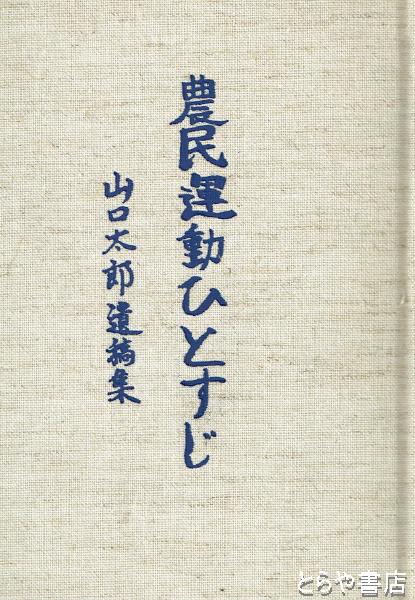 農民運動ひとすじ
山口太郎遺稿集
とらや書店